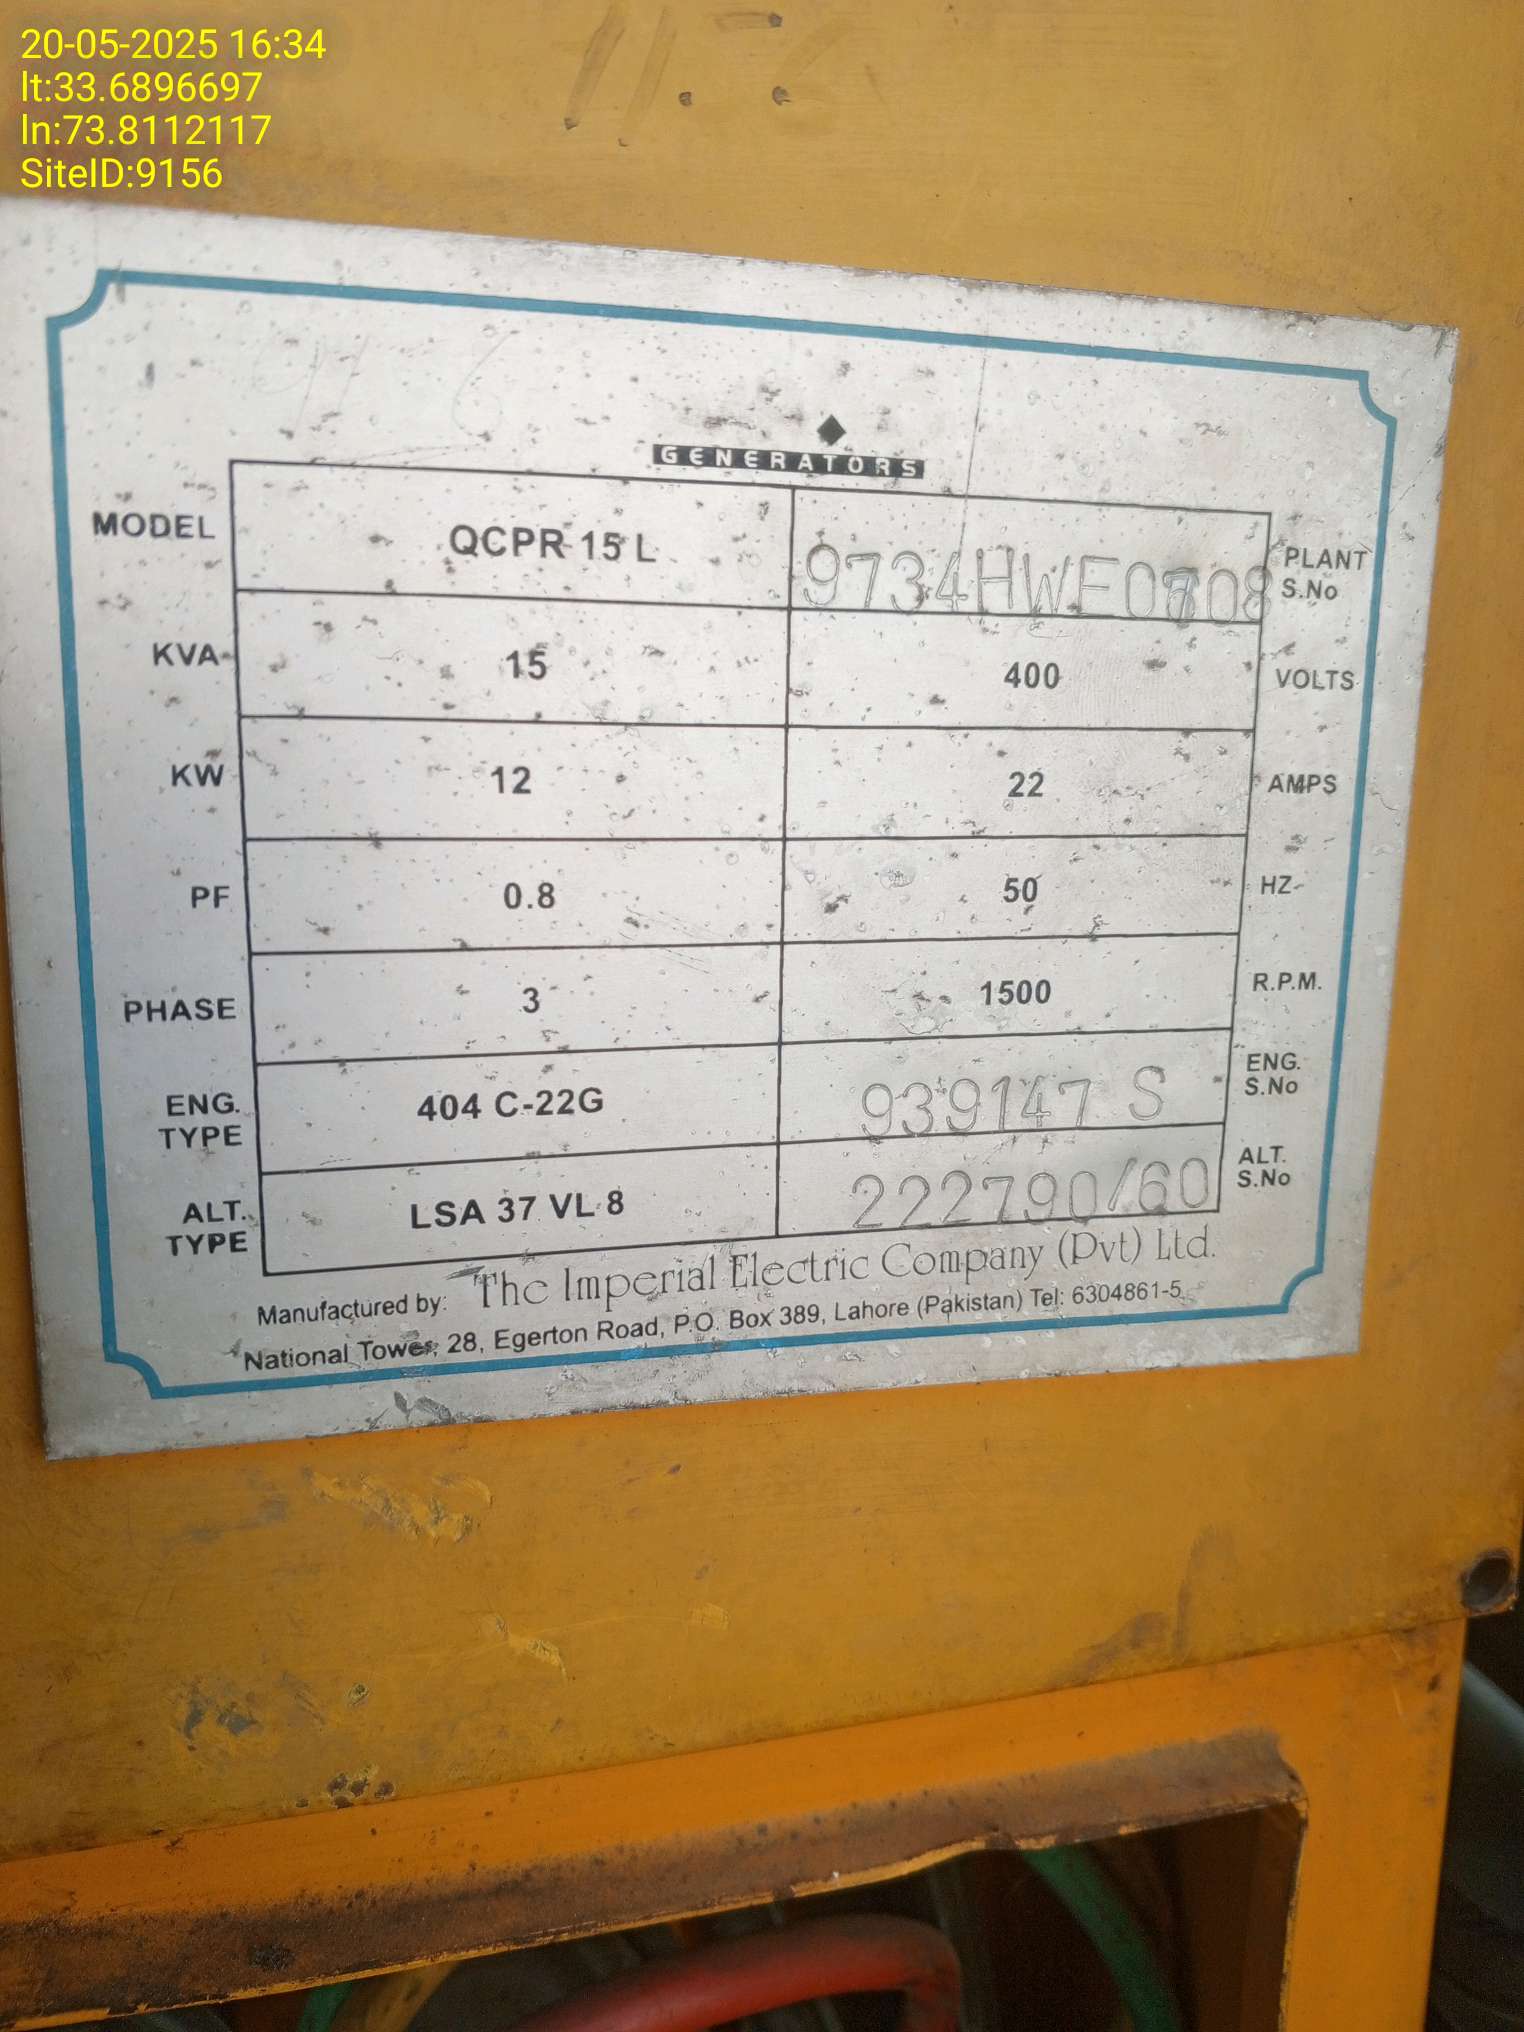 20-05-2025 16:34
lt:33.6896697
ln:73.8112117
SiteID:9156
GENERATORS
MODEL QCPR 15 L PLANT S.No
KVA 15 400 VOLTS
KW 12 22 AMPS
PF 0.8 50 HZ
PHASE 3 1500 R.P.M.
ENG. TYPE 404 C-22G 939147 S ENG. S.No
ALT. TYPE LSA 37 VL 8 222790/60 ALT. S.No
Manufactured by: The Imperial Electric Company (Pvt) Ltd.
National Tower, 28, Egerton Road, P.O. Box 389, Lahore (Pakistan) Tel: 6304861-5